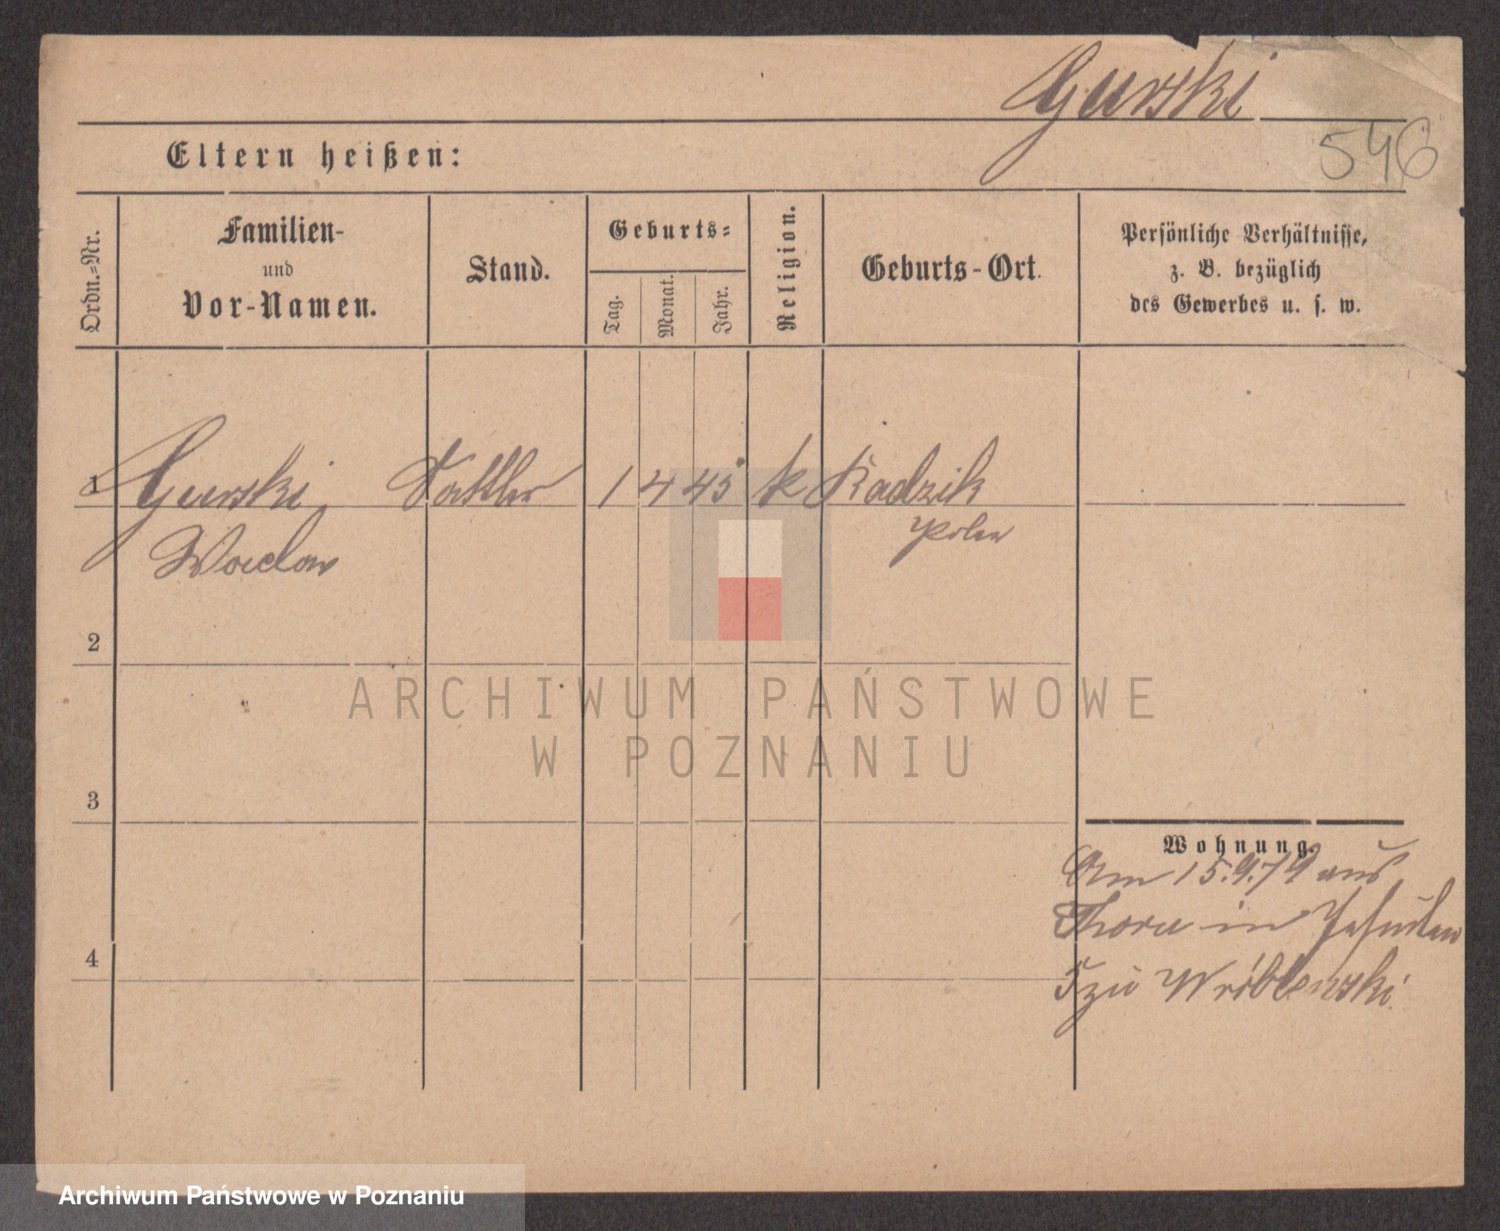 Gurski
546
Eltern heißen:
Ordn.-Nr.
Familien-
und
Vor-Namen.
Stand.
Geburts-
Tag.
Monat.
Jahr.
Religion.
Geburts-Ort.
Persönliche Verhältnisse,
z. B. bezüglich
des Gewerbes u. s. w.
1 Gurski Sattler 1 4 45 k Radzik
Polen
2
3
4
Wohnung.
Am 15.9.79 aus
Thorn in
Wróblewski
ARCHIWUM PAŃSTWOWE
W POZNANIU
Archiwum Państwowe w Poznaniu